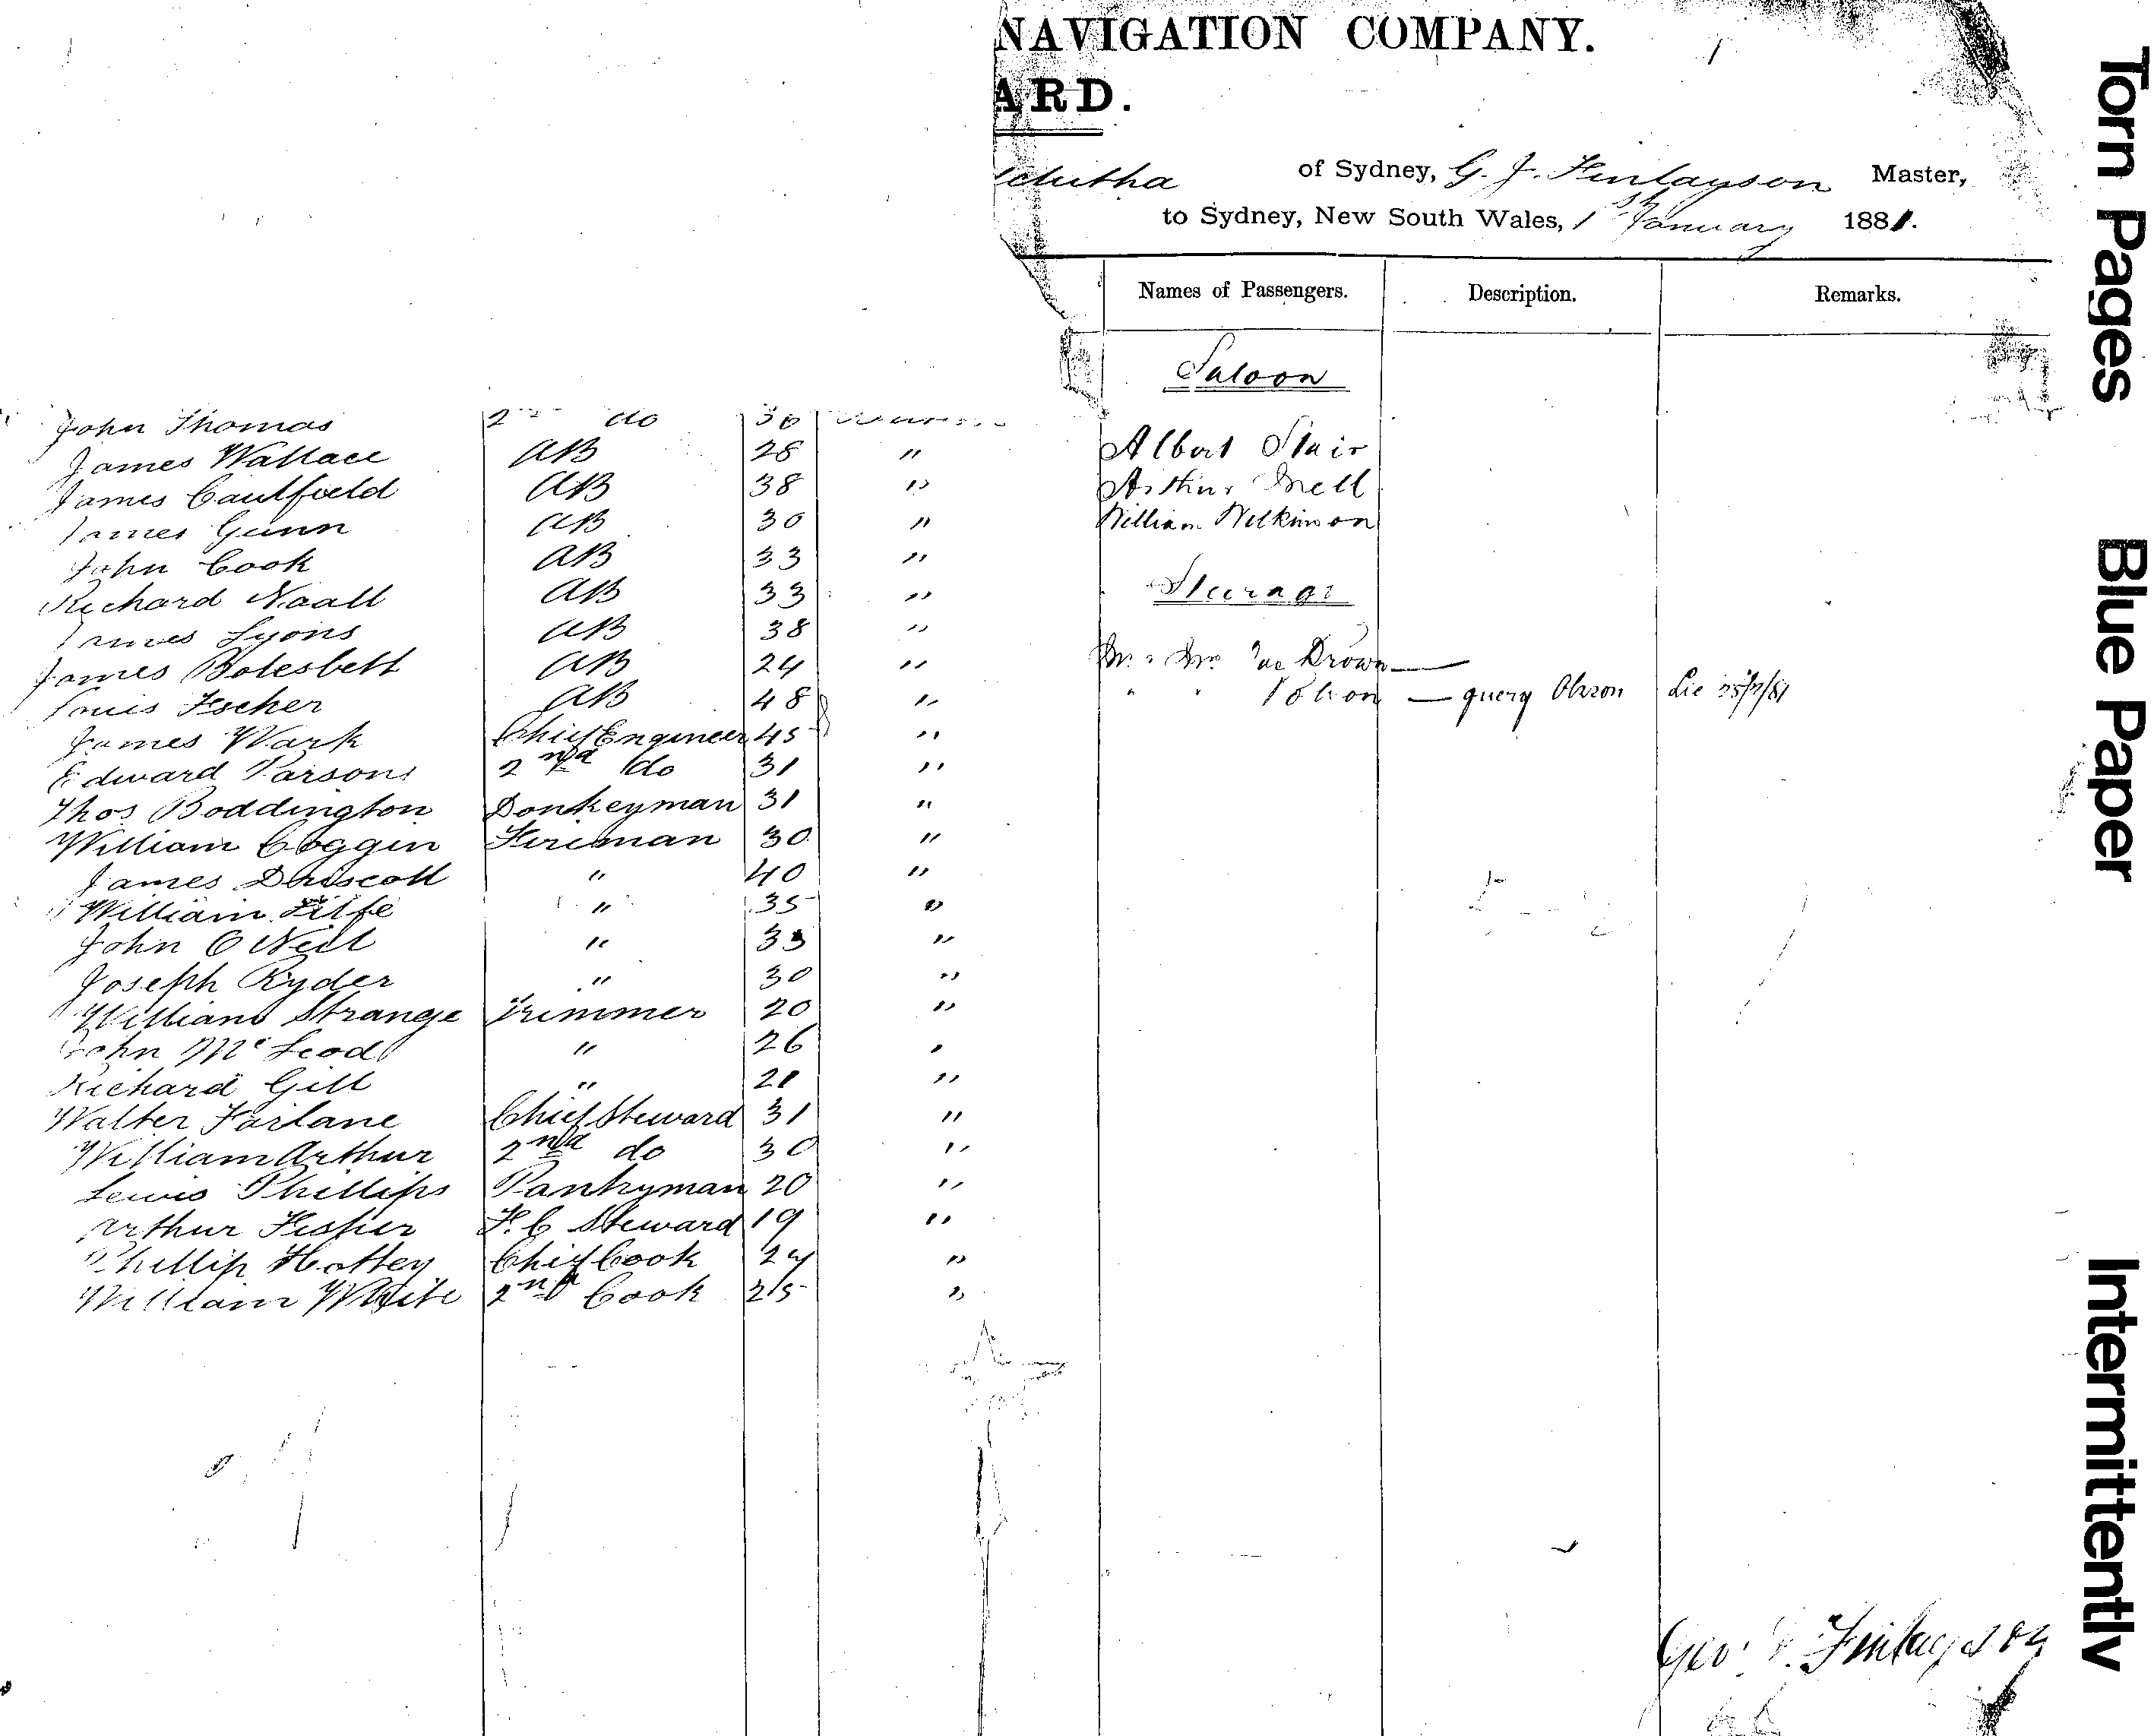 NAVIGATION COMPANY.
ARD.
of Sydney, G. J. Finlayson Master,
to Sydney, New South Wales, 1st January 1881.
Names of Passengers. Description. Remarks.
Saloon
Albert Stair
Arthur Mell
William Wilkinson
Steerage
Brown
" " — query Olsson
John Thomas 2nd do 36
James Wallace AB 28 "
James Caulfield AB 38 "
James Gunn AB 30 "
John Cook AB 33 "
Richard Naall AB 33 "
James Lyons AB 38 "
James Bolesbett AB 24 "
Louis Fscher AB 48 "
James Wark Chief Engineer 45 "
Edward Parsons 2nd do 31 "
Thos Boddington Donkeyman 31 "
William Coggin Fireman 30 "
James Driscoll " 40 "
William " 35 "
John O Neil " 33 "
Joseph Ryder " 30 "
William Strange Trimmer 20 "
John McLeod " 26 "
Richard Gill " 21 "
Walter Farlane Chief Steward 31 "
William Arthur 2nd do 30 "
Lewis Phillips Pantryman 20 "
Arthur Fisher F. C Steward 19 "
Phillip Hottey Chief Cook 24 "
William White 2nd Cook 25 "
Geo. J. Finlayson
Torn Pages Blue Paper Intermittently